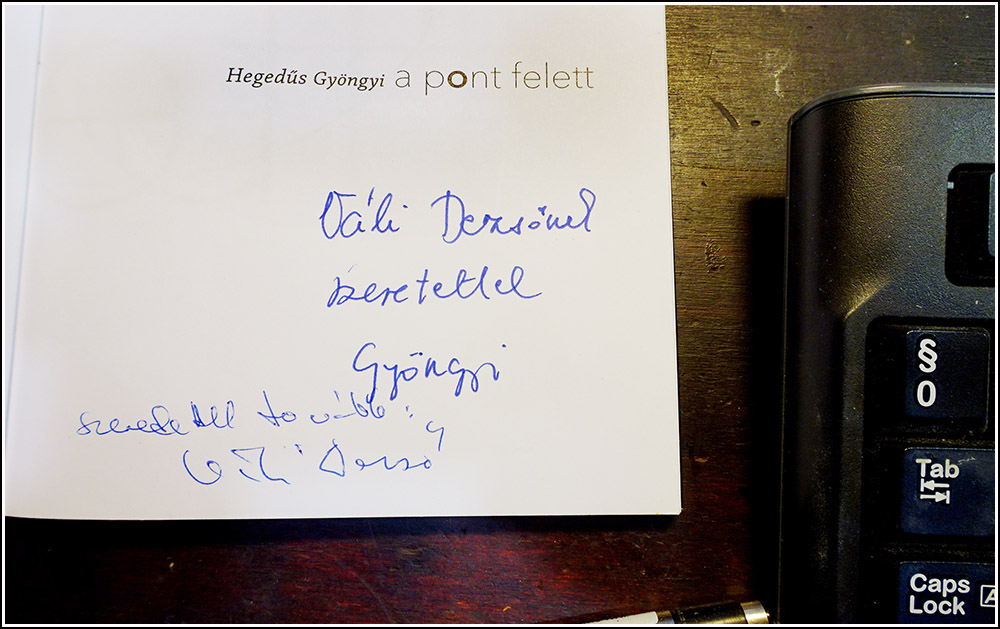 Hegedűs Gyöngyi a pont felett
Váli Dezsőnek
szeretettel
Gyöngyi
szeretettel tovább:
Váli Dezső
§
0
Tab
Caps
Lock
A